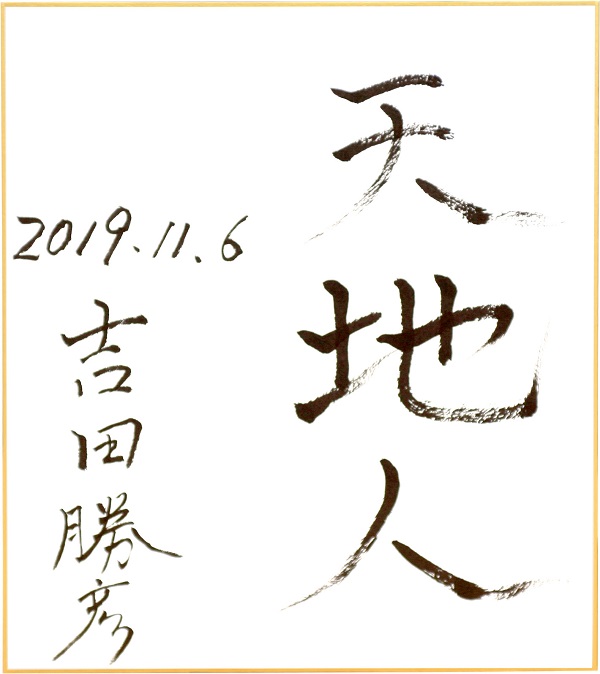 天地人
2019.11.6
吉田勝彦